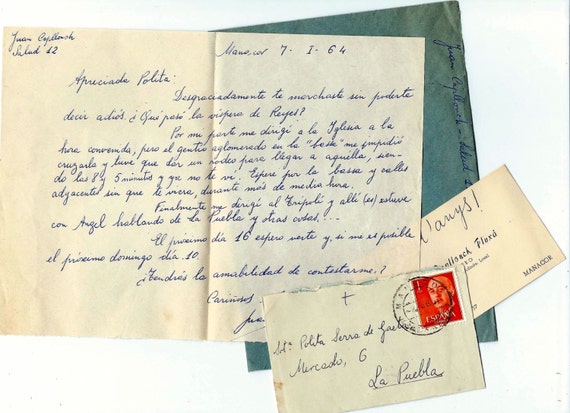 Juan
Salud 12
Manacor 7-I-64
Apreciada Polita:
Desgraciadamente te marchaste sin poderte
decir adiós. ¿Qué pasó la víspera de Reyes?
Por mi parte me dirigí a la Iglesia a la
hora convenida, pero el gentío aglomerado en la "bassa" me impidió
cruzarla y tuve que dar un rodeo para llegar a aquella, sien-
do las 8 y 5 minutos y ya no te vi. Espere por la bassa y calles
adyacentes sin que te viera, durante más de media hora.
Finalmente me dirigí al Trípoli y allí (es)estuve
con Angel hablando de La Puebla y otras cosas...
El próximo día 16 espero verte y, si me es posible
el próximo domingo día 10.
¿Tendrás la amabilidad de contestarme?
Cariñosos
Jua
Juan
anys!
Flexá
MANACOR
ESPAÑA
Srtª Polita Serra de
Mercado, 6
La Puebla